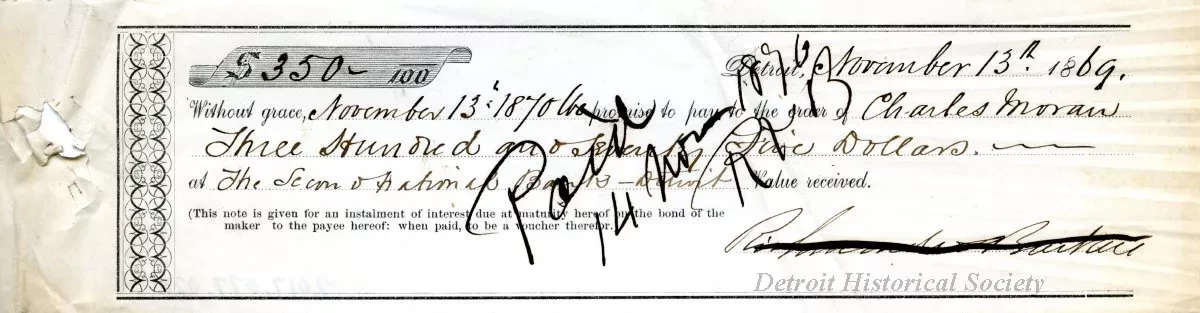 $350- 100
Detroit, November 13th. 1869.
Without grace, November 13th 1870 We promise to pay to the order of Charles Moran
Three Hundred and Seventy Five Dollars.
at The Second National Bank - Detroit Value received.
(This note is given for an instalment of interest due at maturity hereof on the bond of the
maker to the payee hereof: when paid, to be a voucher therefor.)
Richmond & Backus
Paid
14 Nov
Detroit Historical Society